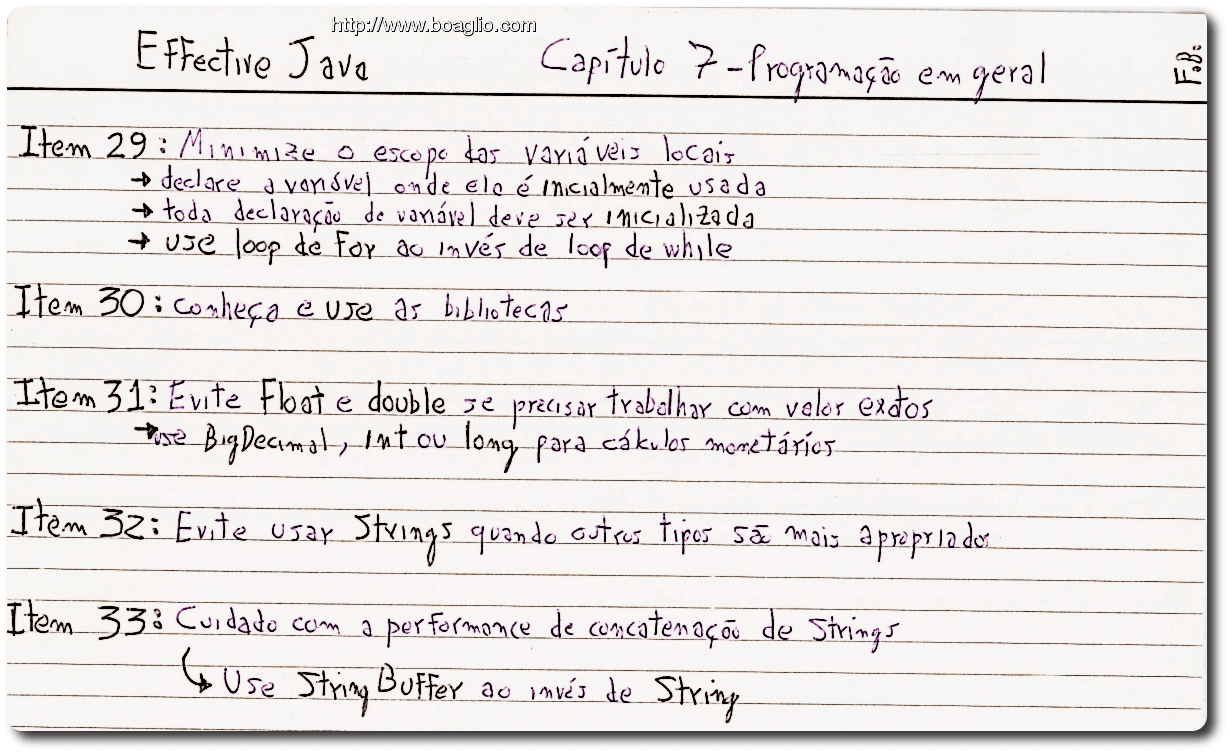 http://www.boaglio.com
Effective Java Capítulo 7 - Programação em geral F.B.
Item 29: Minimize o escopo das variáveis locais
→ declare a variável onde ela é inicialmente usada
→ toda declaração de variável deve ser inicializada
→ use loop de for ao invés de loop de while
Item 30: conheça e use as bibliotecas
Item 31: Evite Float e double se precisar trabalhar com valor exatos
→ use BigDecimal, int ou long para cálculos monetários
Item 32: Evite usar Strings quando outros tipos são mais apropriados
Item 33: Cuidado com a performance de concatenação de Strings
↳ Use StringBuffer ao invés de String